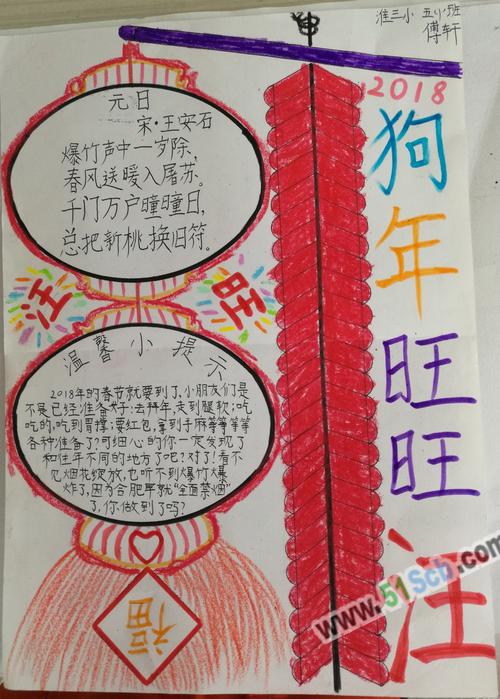 淮三小 五(1)班
傅轩
2018
狗年旺旺汪
元日
宋·王安石
爆竹声中一岁除，
春风送暖入屠苏。
千门万户曈曈日，
总把新桃换旧符。
汪
旺
温馨小提示
2018年的春节就要到了，小朋友们是
不是已经准备好：去拜年，走到腿软；吃
吃的，吃到胃撑；要红包，拿到手麻等等等等
各种准备了？可细心的你一定发现了
和往年不同的地方了吧？对了！看不
见烟花绽放，也听不到爆竹大爆
炸了，因为合肥早就"全面禁烟"
了，你做到了吗？
福
www.51Scb.com